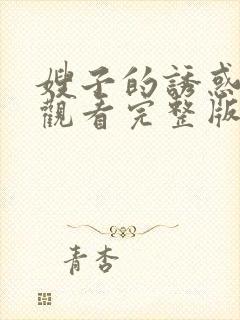 嫂子的誘惑
觀看完整版
青杏